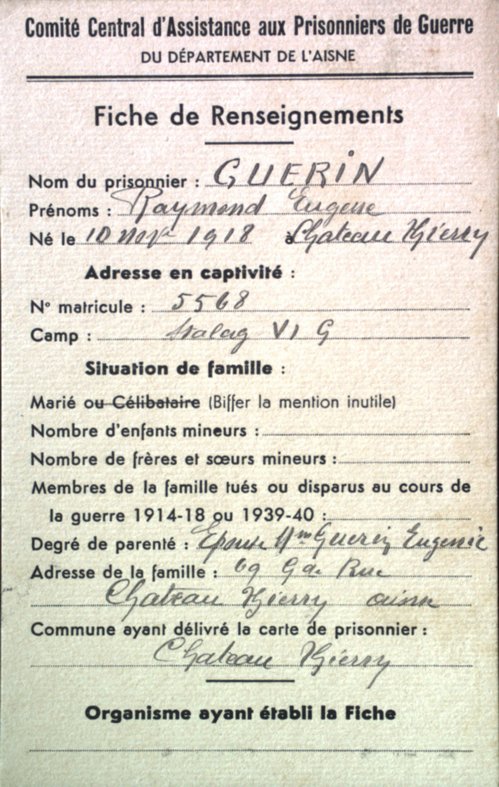 Comité Central d'Assistance aux Prisonniers de Guerre
DU DÉPARTEMENT DE L'AISNE
Fiche de Renseignements
Nom du prisonnier : GUERIN
Prénoms : Raymond Eugene
Né le 10 nov 1918 à Chateau Thierry
Adresse en captivité :
N° matricule : 5568
Camp : Stalag VI G
Situation de famille :
Marié ou Célibataire (Biffer la mention inutile)
Nombre d'enfants mineurs :
Nombre de frères et sœurs mineurs :
Membres de la famille tués ou disparus au cours de
la guerre 1914-18 ou 1939-40 :
Degré de parenté : Epouse Mme Guerin Eugenie
Adresse de la famille : 69 Gde Rue
Chateau Thierry aisne
Commune ayant délivré la carte de prisonnier :
Chateau Thierry
Organisme ayant établi la Fiche